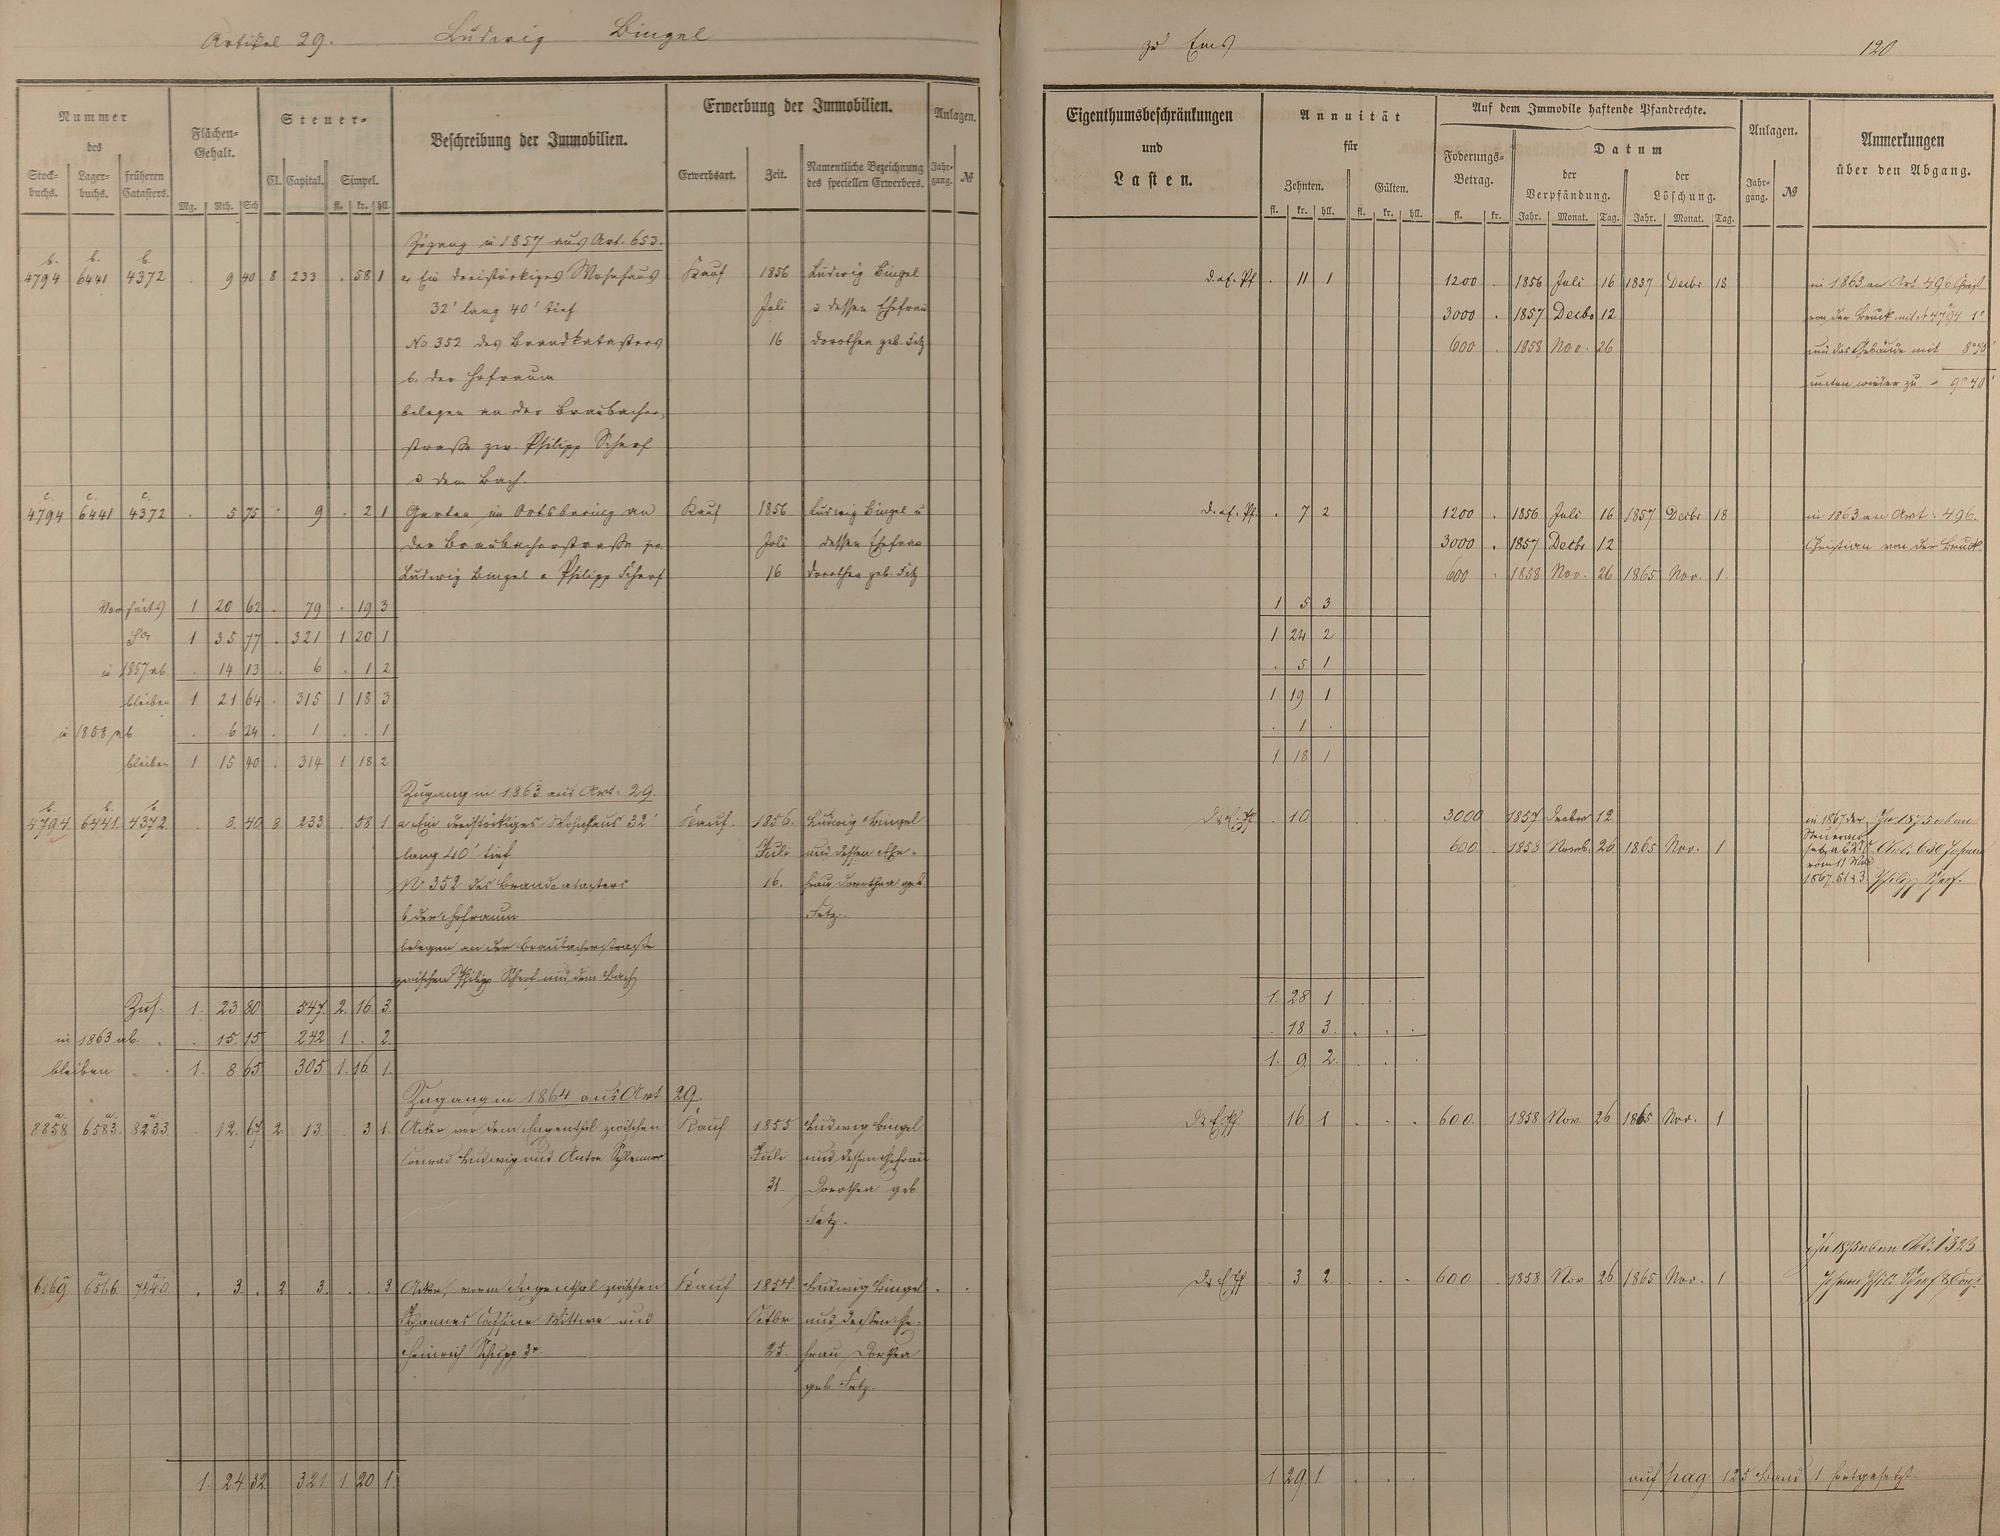 Artikel 29. Ludwig Bingel
zu Ems 120
Nummer des
Stock-buchs. Lager-buchs. früheren Catasters.
Flächen-Gehalt.
Mg. Rth. Sch
Steuer-
Cl. Capital. Simpel.
fl. kr. hll.
Beschreibung der Immobilien.
Erwerbung der Immobilien.
Erwerbsart. Zeit. Namentliche Bezeichnung des speciellen Erwerbers.
Anlagen.
Jahr-gang. №
Eigenthumsbeschränkungen
und
Lasten.
Annuität
für
Zehnten. Gülten.
fl. kr. hll. fl. kr. hll.
Auf dem Immobile haftende Pfandrechte.
Foderungs-Betrag.
fl. kr.
Datum
der Verpfändung. der Löschung.
Jahr. Monat. Tag. Jahr. Monat. Tag.
Anlagen.
Jahr-gang. №
Anmerkungen
über den Abgang.
Zugang in 1857 aus Art. 653.
b. b. b.
4794 6441 4372 . 9 40 8 233 . 58 1 a. Ein dreistöckiges Wohnhaus Kauf 1856 Ludwig Bingel . 11 1 1200 . 1856 Juli 16 1857 Decbr 18 in 1863 an Art 496 Christ
32' lang 40' tief Juli u dessen Ehefrau 3000 . 1857 Decbr 12 von der Bruck mit № 4794 1°
No 352 des Brandkatasters 16 Dorothea geb. Fetz 600 . 1858 Nov. 26 und das Gebäude mit
b. der Hofraum unten wieder zu 9° 40'
belegen an der Braubacher-
straße zw. Philipp Scherf
u dem Bach.
c. c. c.
4794 6441 4372 . 5 75 9 . 2 1 Garten im Ortsbering an Kauf 1856 Ludwig Bingel u . 7 2 1200 . 1856 Juli 16 1857 Decbr 18 in 1863 an Art. 496.
der Braubacherstraße zw. Juli dessen Ehefrau 3000 . 1857 Decbr 12 Christian von der Bruck
Ludwig Bingel u Philipp Scherf 16 Dorothea geb. Fetz 600 . 1858 Nov. 26 1865 Nov. 1.
Vorseits 1 20 62 . 79 . 19 3 1 5 3
Sa 1 35 77 . 321 1 20 1 1 24 2
in 1857 ab . 14 13 . 6 . 1 2 . 5 1
bleiben 1 21 64 . 315 1 18 3 1 19 1
in 1858 ab . 6 24 . 1 . . 1 . 1 .
bleiben 1 15 40 . 314 1 18 2 1 18 1
Zugang in 1863 aus Art. 29.
b. b. b.
4794. 6441. 4372. . 8. 40 8 233 . 58 1 a Ein dreistöckiges Wohnhaus 32' Kauf. 1856. Ludwig Bingel . 10 3000 1857 Decbr 12. in 1867 der In 1875 ab an
lang 40' tief Juli und dessen Ehe- 600. 1858 Novb. 26 1865 Nov. 1 Art. 630 Johann
№ 352 des Brandcatasters 16. frau Dorothea geb. vom 11 Mai
b der Hofraum Fetz. 1867 Philipp Scherf.
belegen an der Braubacherstraße
zwischen Philipp Scherf und dem Bach
Zus. 1. 23 80 547. 2. 16. 3. 1. 28 1 . . .
in 1863 ab. . . 15. 15 242 1 . 2. . 18 3. . . .
bleiben . . 1. 8 65 305 1. 16 1. 1. 9 2. . . .
Zugang in 1864 aus Art 29.
a. a. a.
8858 6583. 8233 . 12. 67 2 13 . 3 1. Acker vor dem Engenthal zwischen Kauf 1855 Ludwig Bingel 16 1 . . . 600. 1858 Nov. 26 1865 Nov. 1
Conrad Ludwig und Anton Juli und dessen Ehefrau
31. Dorothea geb
Fetz.
In 1875 ab an Art. 1323
a a. a.
6566. 7440. . 3. . 2 3. . . 3 Acker vorm Engenthal zwischen Kauf 1854. Ludwig Bingel . . 3 2. . . . 600 . 1858 Nov 26 1865 Nov. 1 Johann Phil. Scherf
Johannes Wittwe und Octbr und dessen Ehe-
Heinrich Schupp 3r 25. frau Dorothea
geb Fetz.
1. 24. 32. 321 1 20 1. 1 29. 1 . . . auf pag 125 Band 1 fortgesetzt